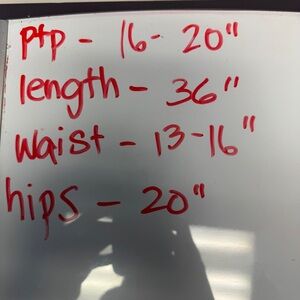 ptp - 16- 20"
length - 36"
waist - 13-16"
hips - 20"